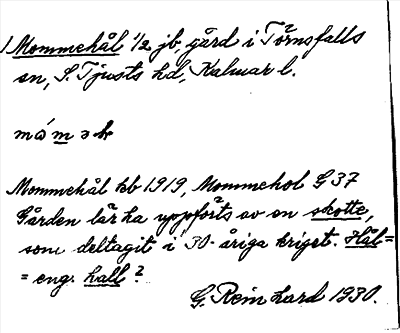 Mommehål 1/2 jb, gård i Törnsfalls
sn, S. Tjusts hd, Kalmar l.
Mommehål kb 1919, Mommehol G 37
Gården lär ha uppförts av en skotte,
som deltagit i 30-åriga kriget. Hål =
= eng. hall?
G. Reinhard 1930.